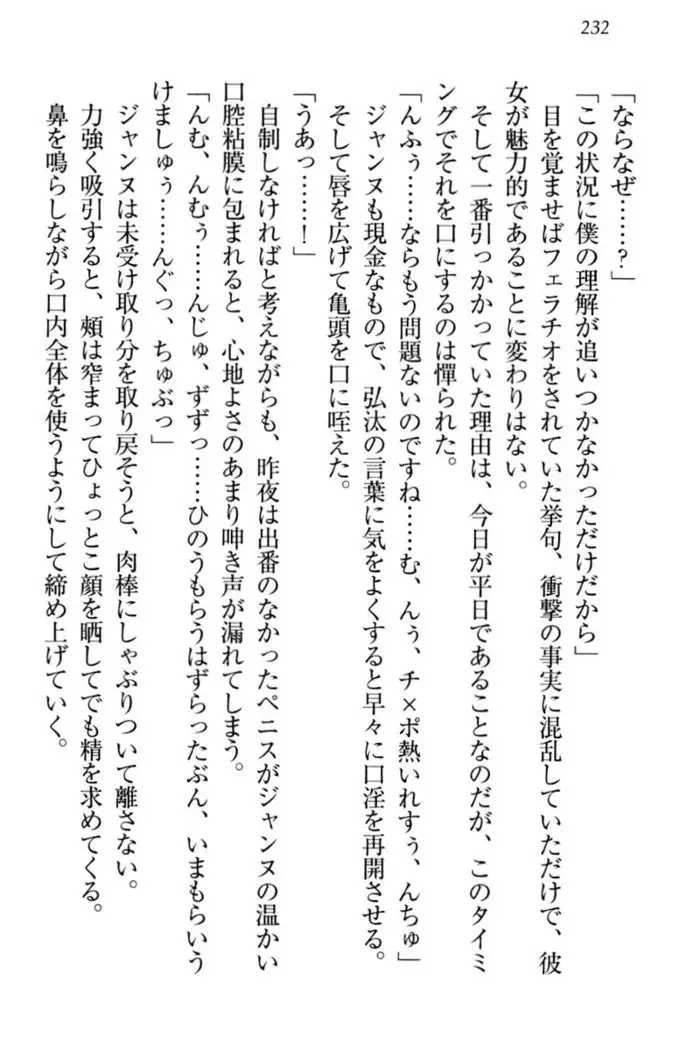 232
「ならなぜ……?」
「この状況に僕の理解が追いつかなかっただけだから」
目を覚ませばフェラチオをされていた挙句、衝撃の事実に混乱していただけで、彼
女が魅力的であることに変わりはない。
そして一番引っかかっていた理由は、今日が平日であることなのだが、このタイミ
ングでそれを口にするのは憚られた。
「んふぅ……ならもう問題ないのですね……む、んぅ、チ×ポ熱いれすぅ、んちゅ」
ジャンヌも現金なもので、弘汰の言葉に気をよくすると早々に口淫を再開させる。
そして唇を広げて亀頭を口に咥えた。
「うあっ……!」
自制しなければと考えながらも、昨夜は出番のなかったペニスがジャンヌの温かい
口腔粘膜に包まれると、心地よさのあまり呻き声が漏れてしまう。
「んむ、んむぅ……んじゅ、ずずっ……ひのうもらうはずらったぶん、いまもらいう
けましゅぅ……んぐっ、ちゅぶっ」
ジャンヌは未受け取り分を取り戻そうと、肉棒にしゃぶりついて離さない。
力強く吸引すると、頰は窄まってひょっとこ顔を晒してでも精を求めてくる。
鼻を鳴らしながら口内全体を使うようにして締め上げていく。